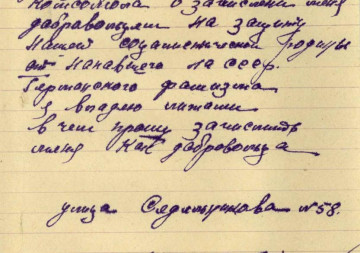 Комсомола о зачислении меня
добравольцем на защиту
нашей социалистической родины
от напавшего на ссср.
Германского фашизма
в чем прошу зачислить
меня как добровольца
улица № 58.